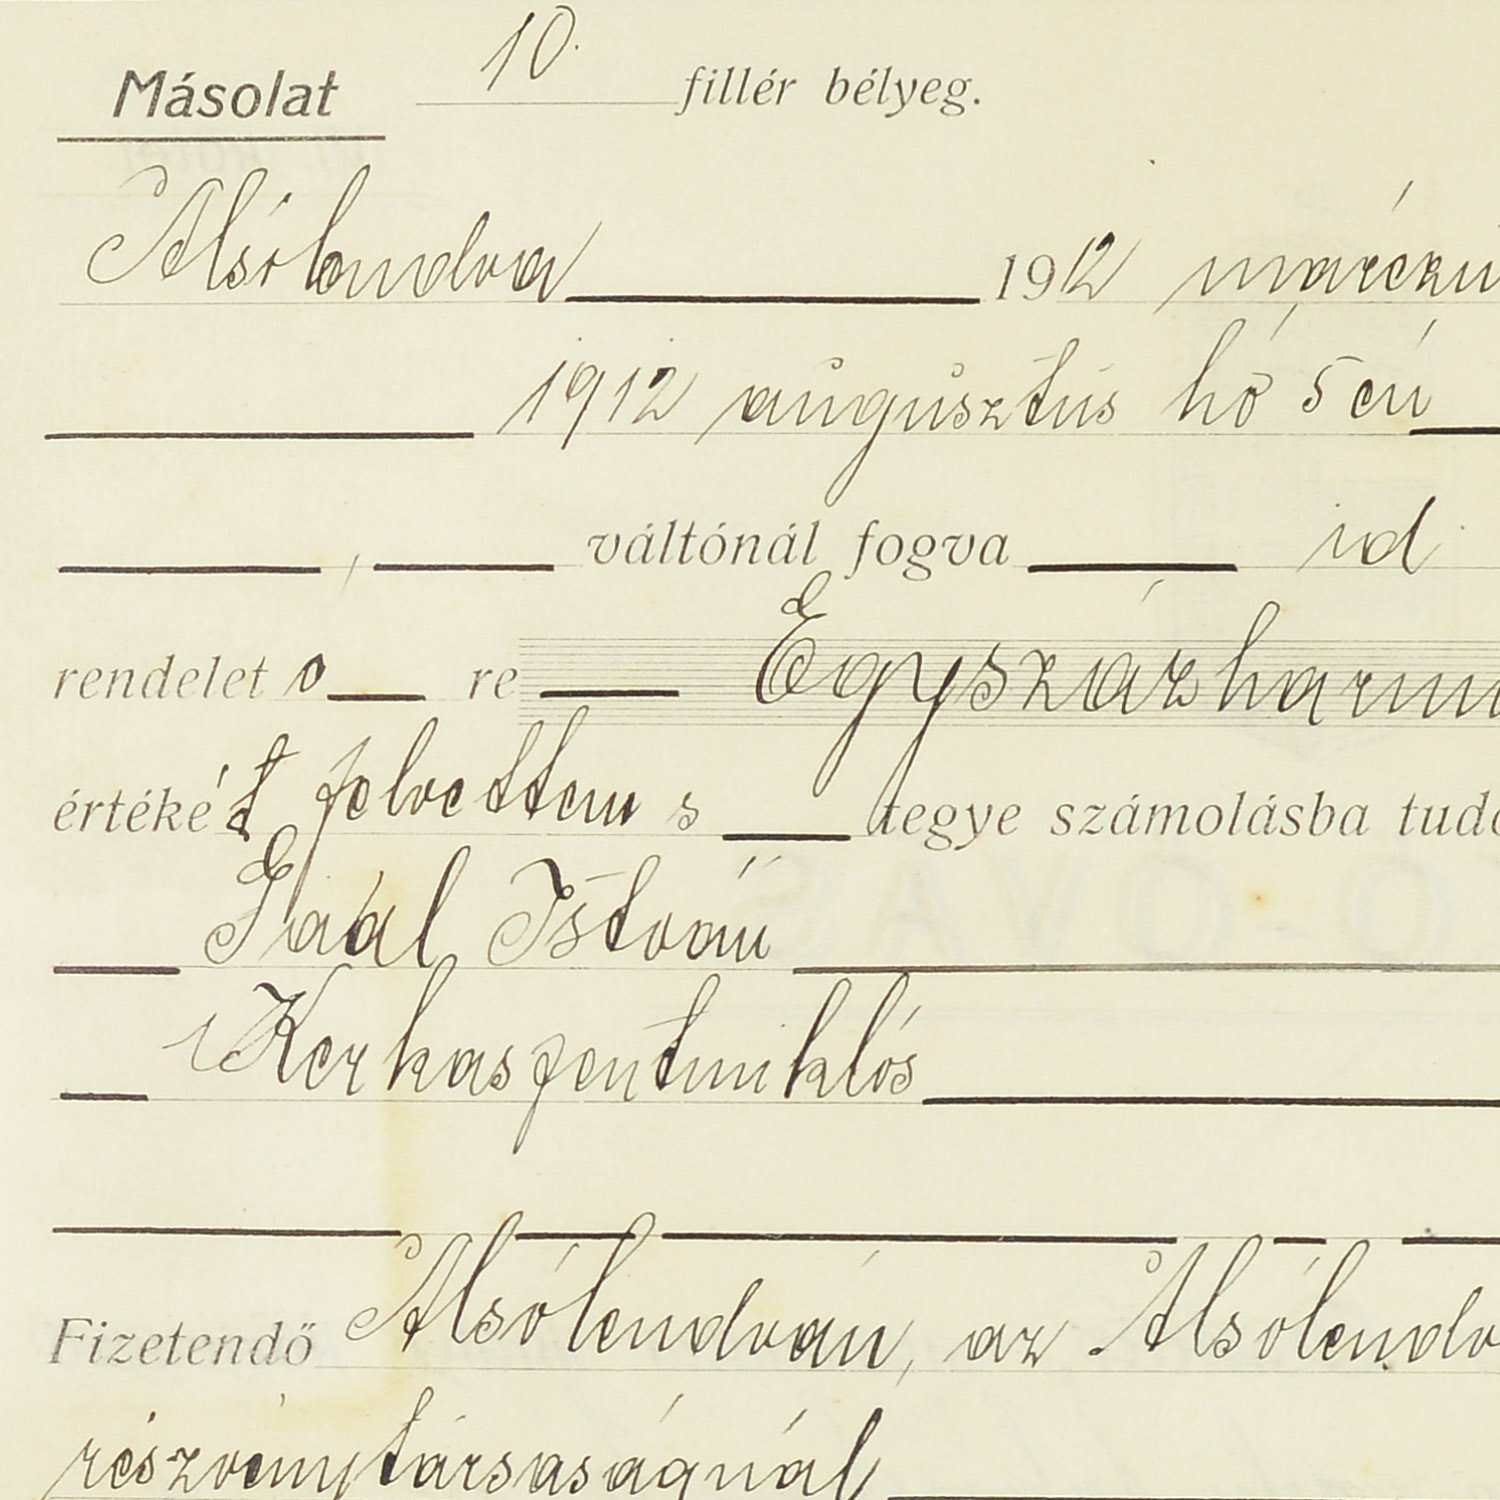 Másolat 10. fillér bélyeg.
Alsólendva 1912
1912 augusztus hó 5 én
váltónál fogva id
rendelet ő re Egyszázharm
értékét felvettem s tegye számolásba tud
Gaál István
Kerkaszentmiklós
Fizetendő Alsólendván, az Alsólendv
részvénytársaságnál